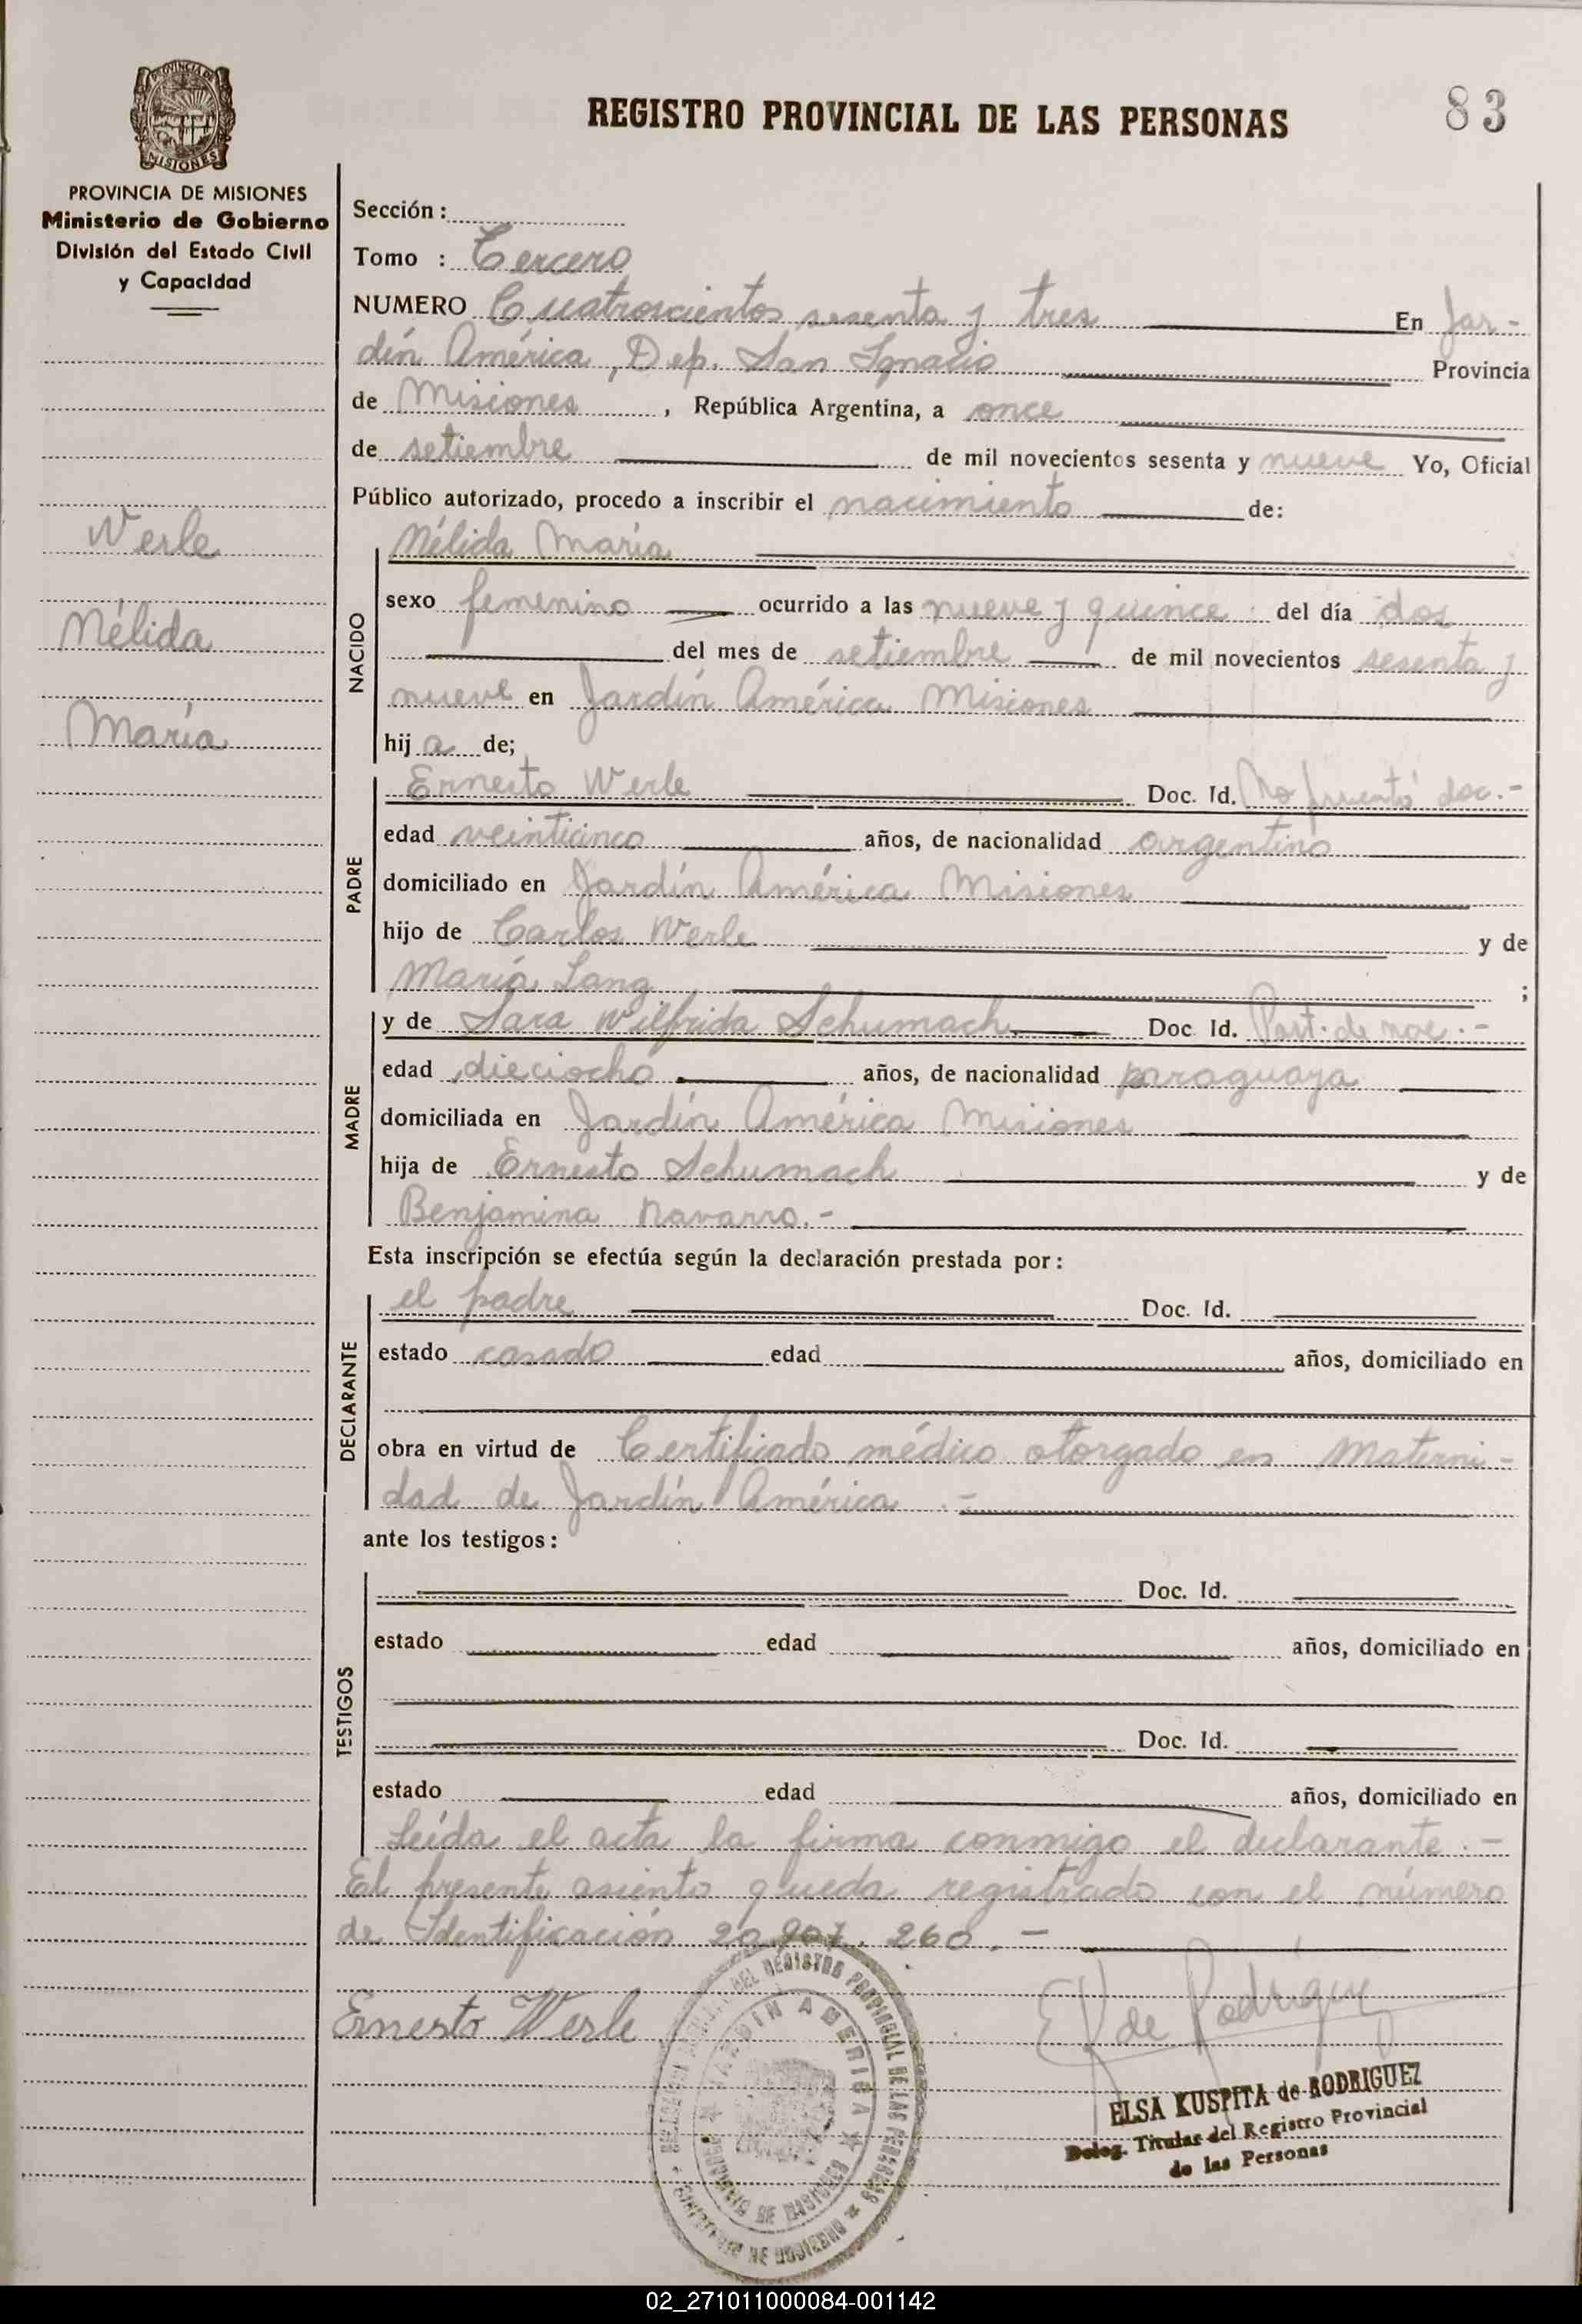 REGISTRO PROVINCIAL DE LAS PERSONAS
83
PROVINCIA DE MISIONES
PROVINCIA DE MISIONES
Ministerio de Gobierno
División del Estado Civil
y Capacidad
Werle
Nélida
María
Sección :
Tomo : Tercero
NUMERO Cuatroscientos sesenta y tres En Jar-
dín América, Dep. San Ignacio Provincia
de Misiones , República Argentina, a once
de setiembre de mil novecientos sesenta y nueve Yo, Oficial
Público autorizado, procedo a inscribir el nacimiento de:
NACIDO
Nélida María
sexo femenino ocurrido a las nueve y quince del día dos
del mes de setiembre de mil novecientos sesenta y
nueve en Jardín América Misiones
hij a de;
PADRE
Ernesto Werle Doc. Id. No presentó doc.-
edad veinticinco años, de nacionalidad argentino
domiciliado en Jardín América Misiones
hijo de Carlos Werle y de
María Lang ;
MADRE
y de Sara Wilfrida Schumach Doc Id. Part. de nac.-
edad dieciocho años, de nacionalidad paraguaya
domiciliada en Jardín América Misiones
hija de Ernesto Schumach y de
Benjamina Navarro.-
Esta inscripción se efectúa según la declaración prestada por:
DECLARANTE
el padre Doc. Id.
estado casado edad años, domiciliado en
obra en virtud de Certificado médico otorgado en Materni-
dad de Jardín América .-
ante los testigos:
TESTIGOS
Doc. Id.
estado edad años, domiciliado en
Doc. Id.
estado edad años, domiciliado en
Leída el acta la firma conmigo el declarante.-
El presente asiento queda registrado con el número
de Identificación 20.907.260.-
Ernesto Werle
E K de Rodríguez
DEL REGISTRO PROVINCIAL DE LAS PERSONAS
JARDIN AMERICA
PROVINCIA DE MISIONES
MINISTERIO DE GOBIERNO
ELSA KUSPITA de RODRIGUEZ
Deleg. Titular del Registro Provincial
de las Personas
02_271011000084-001142